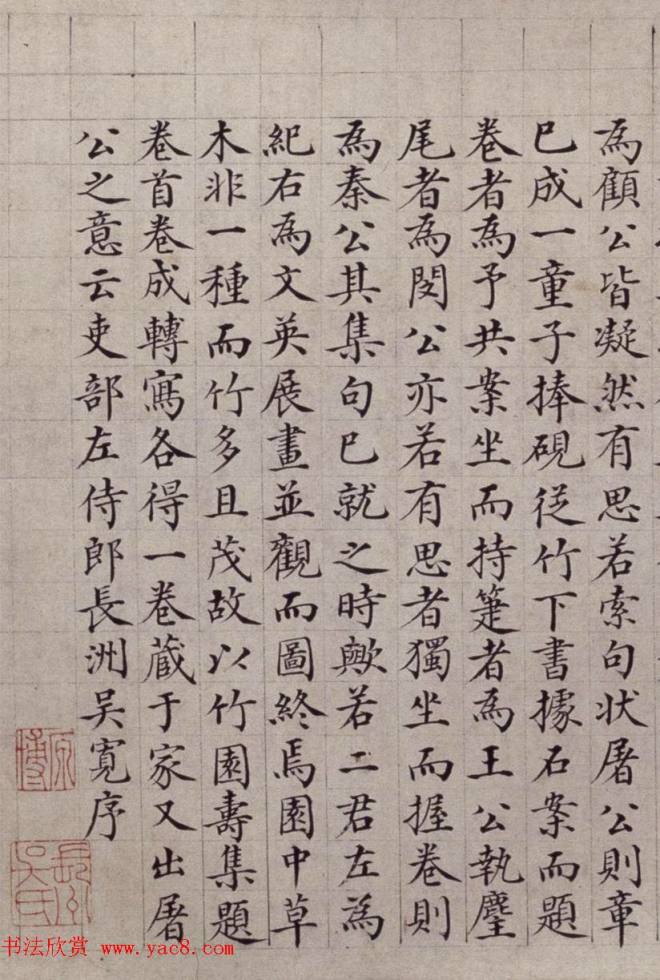 為顧公皆凝然有思若索句状屠公則章
已成一童子捧硯從竹下書據石案而題
卷者為予共案坐而持箑者為王公執麈
尾者為閔公亦若有思者獨坐而握卷則
為秦公其集句已就之時歟若二君左為
紀右為文英展畫並觀而圖終焉園中草
木非一種而竹多且茂故以竹園壽集題
卷首卷成轉寫各得一卷蔵于家又出屠
公之意云吏部左侍郎長洲吴寬序
原博
長州吴氏
书法欣赏 www.yac8.com